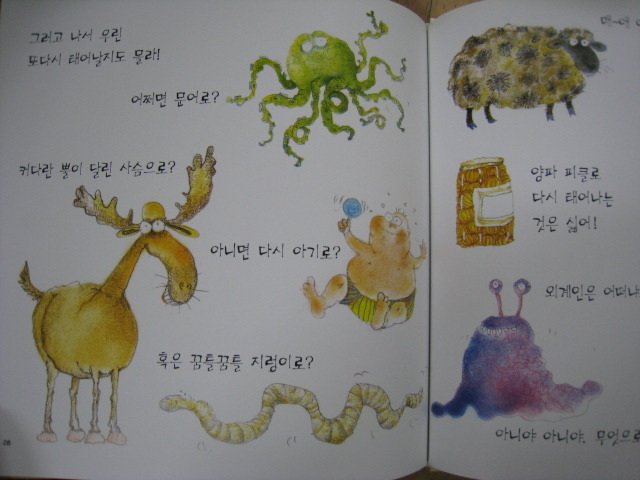 그러고 나서 우린
또다시 태어날지도 몰라!
어쩌면 문어로?
커다란 뿔이 달린 사슴으로?
아니면 다시 아기로?
혹은 꿈틀꿈틀 지렁이로?
28
매~애
양파 피클로
다시 태어나는
것은 싫어!
외계인은 어떠냐
아니야 아니야. 무엇으로